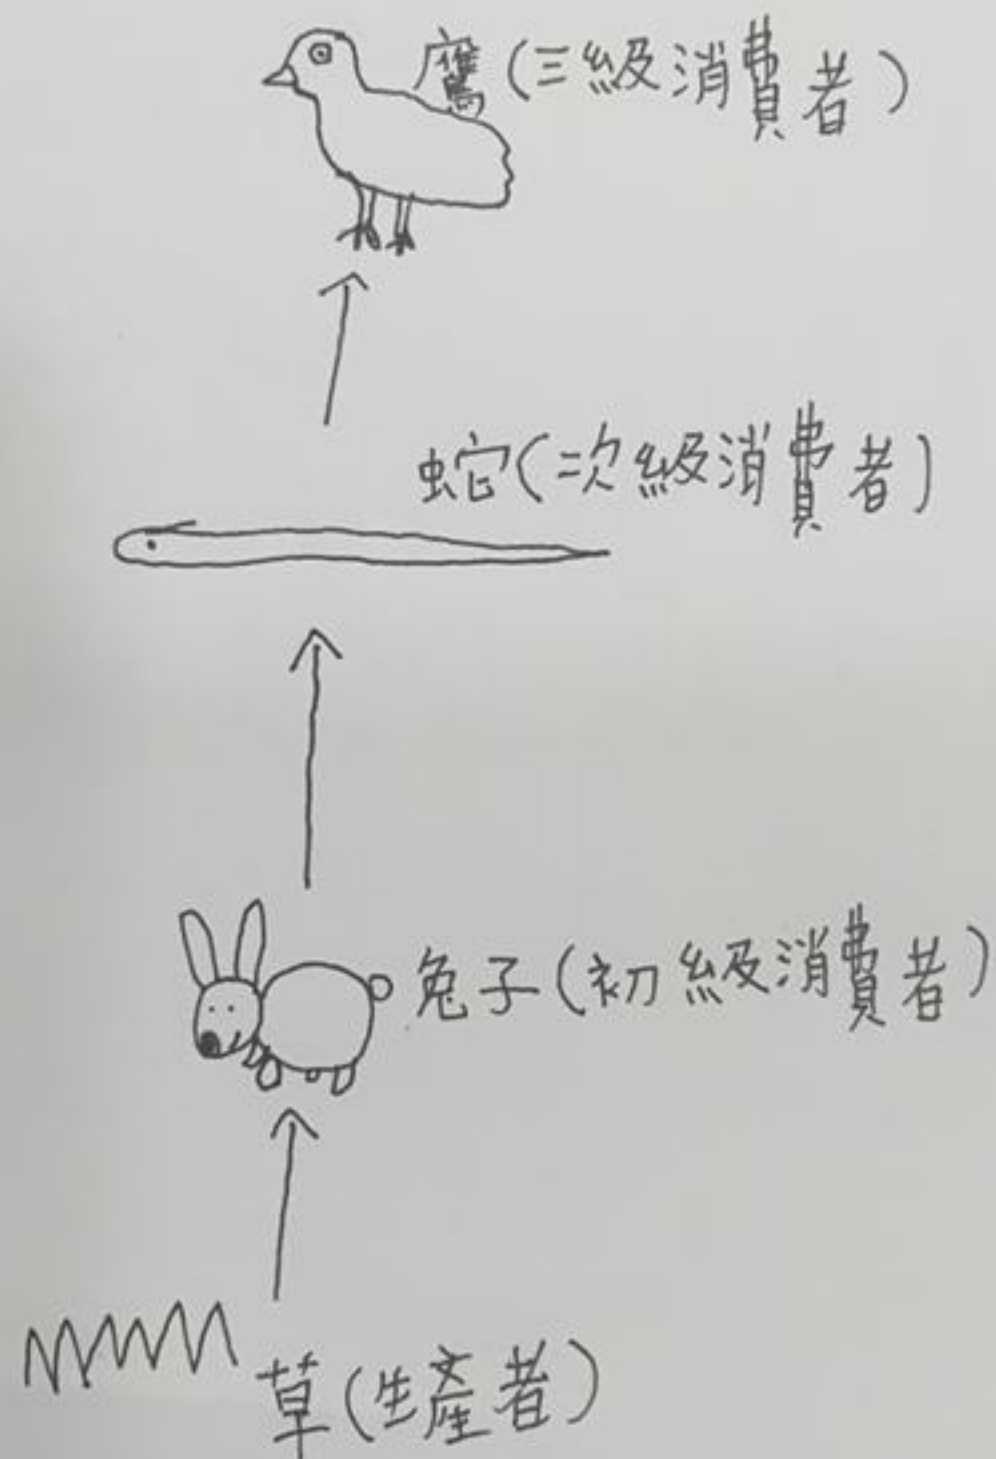 鷹(三級消費者)
蛇(二次級消費者)
兔子(初級消費者)
草(生產者)